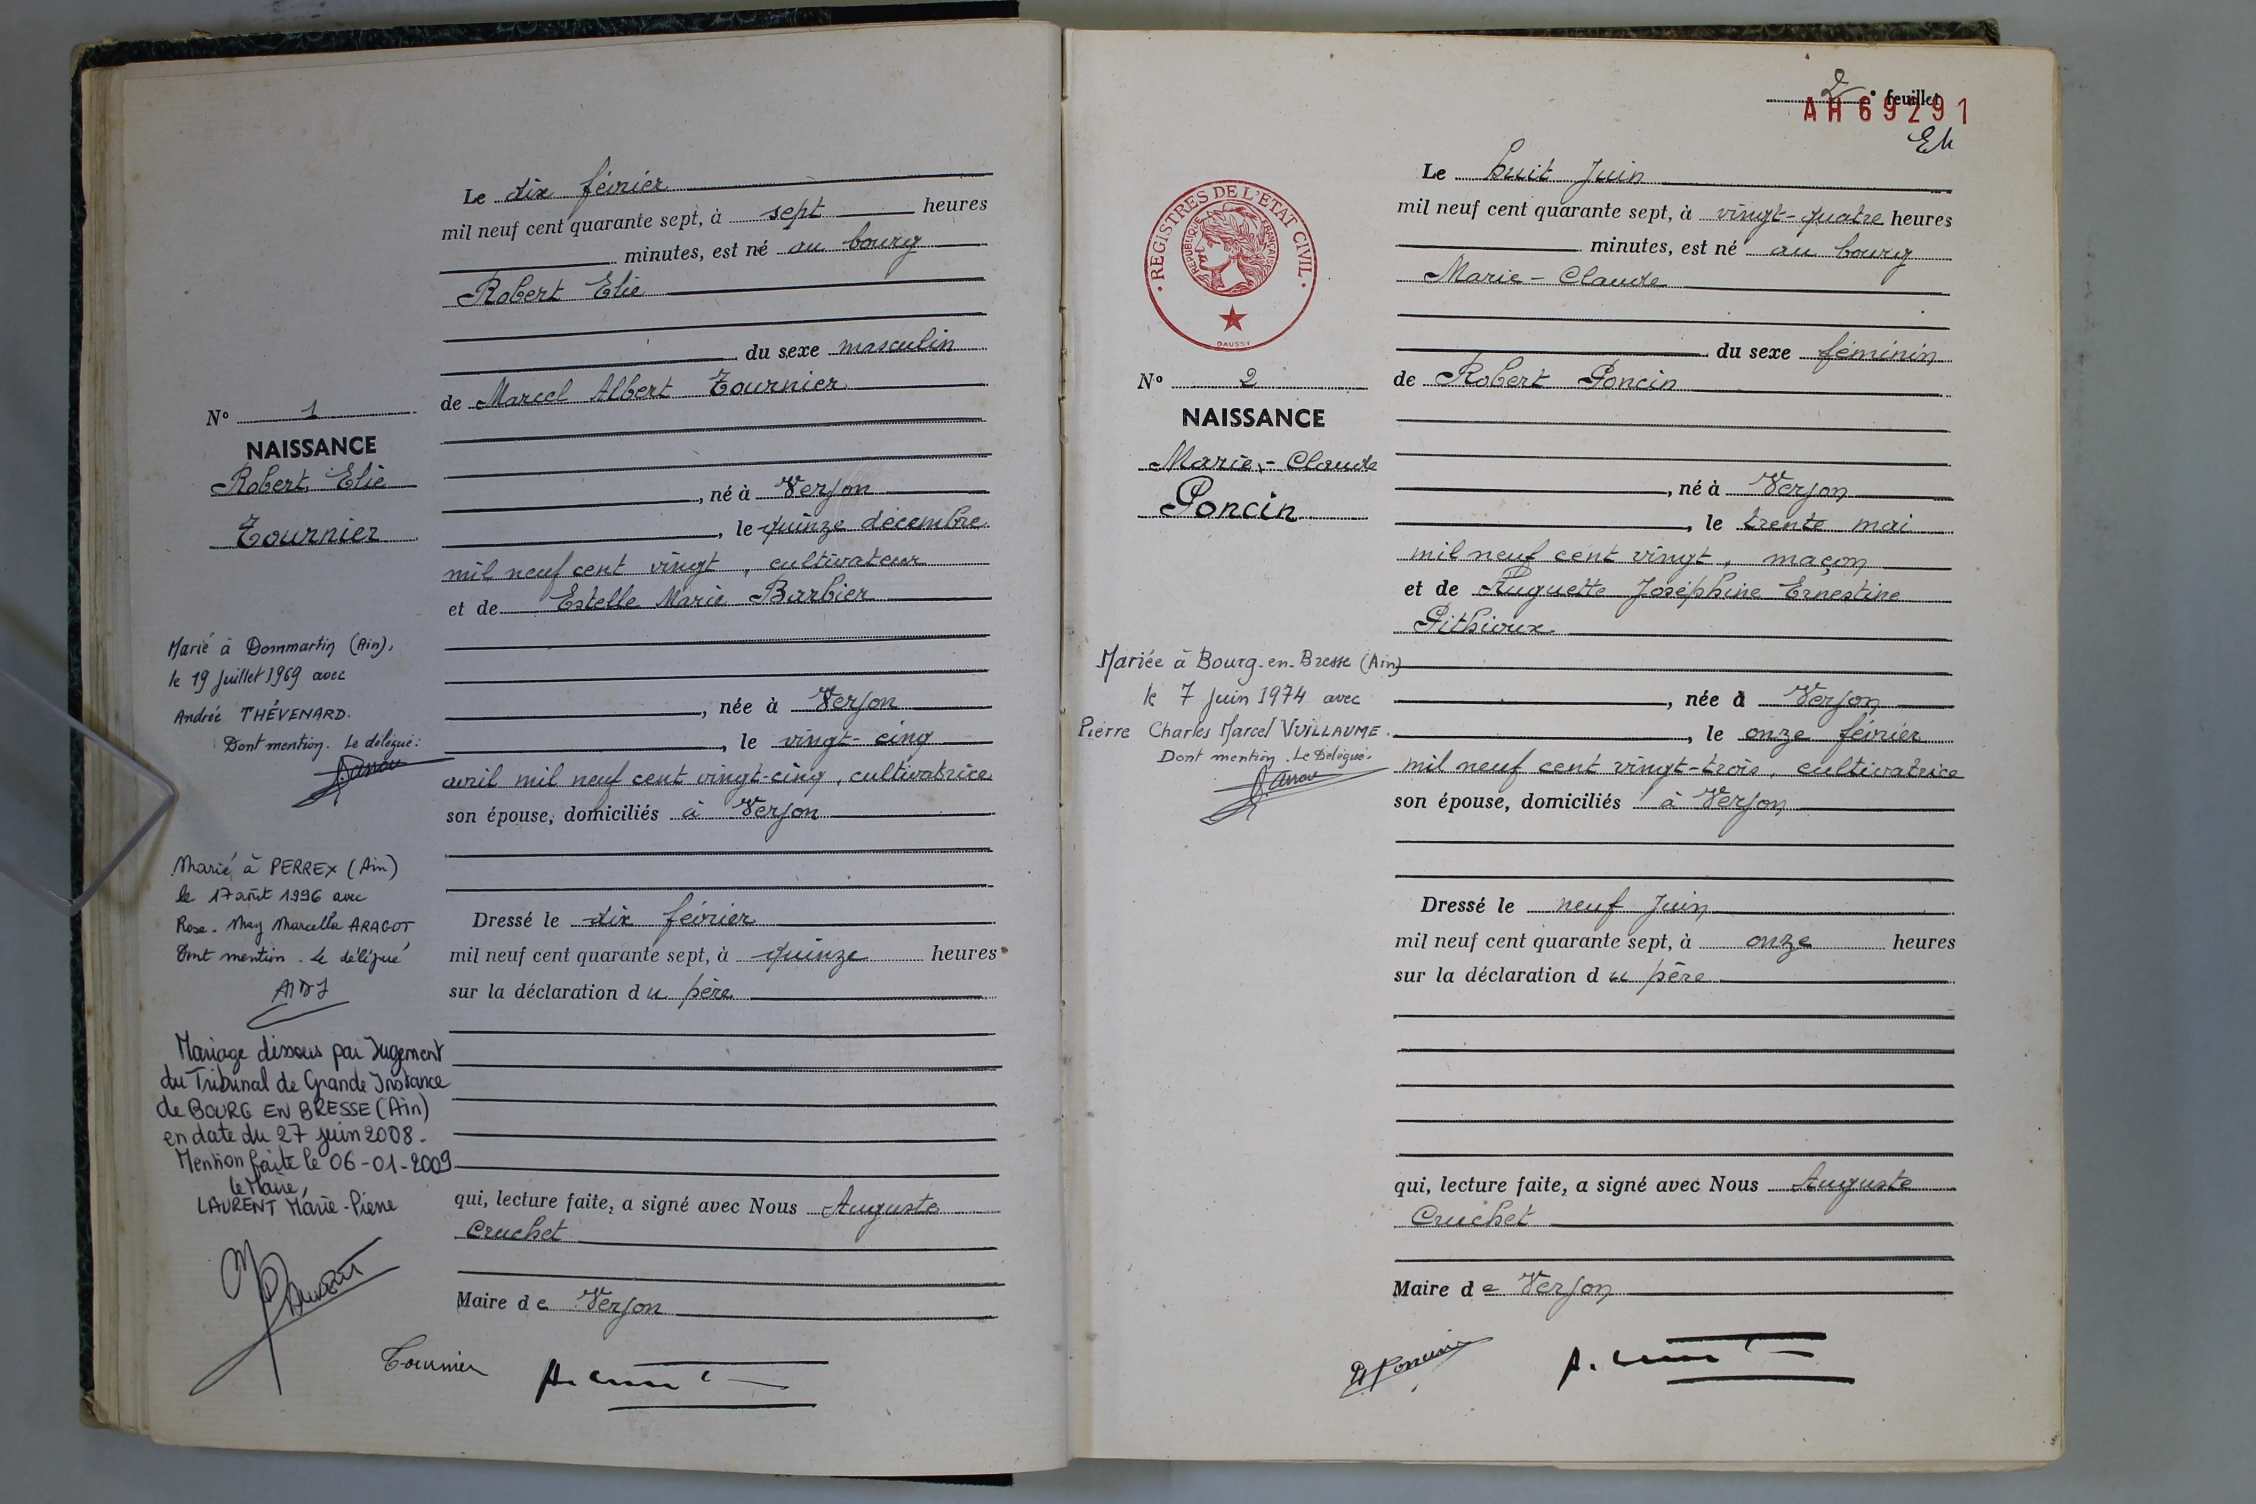 Le dix février
mil neuf cent quarante sept, à sept heures
minutes, est né au bourg
Robert Elie
du sexe masculin
de Marcel Albert Tournier
, né à Verjon
, le quinze décembre
mil neuf cent vingt, cultivateur
et de Estelle Marie Barbier
, née à Verjon
, le vingt-cinq
avril mil neuf cent vingt-cinq, cultivatrice
son épouse, domiciliés à Verjon
Dressé le dix février
mil neuf cent quarante sept, à quinze heures
sur la déclaration du père
qui, lecture faite, a signé avec Nous Auguste
Cruchet
Maire de Verjon
Tournier
N° 1
NAISSANCE
Robert Elie
Tournier
Marié à Dommartin (Ain),
le 19 Juillet 1969 avec
Andrée THÉVENARD.
Dont mention. Le délégué:
Marié à PERREX (Ain)
le 17 août 1996 avec
Rose-May Marcella ARAGOT
Dont mention. Le délégué
Mariage dissous par Jugement
du Tribunal de Grande Instance
de BOURG EN BRESSE (Ain)
en date du 27 juin 2008.
Mention faite le 06-01-2009
le Maire,
LAURENT Marie-Pierre
2e feuillet
AH 69291
REGISTRES DE L'ETAT CIVIL
REPUBLIQUE FRANÇAISE
DAUSSY
Le huit Juin
mil neuf cent quarante sept, à vingt-quatre heures
minutes, est né au bourg
Marie-Claude
du sexe féminin
de Robert Poncin
, né à Verjon
, le trente mai
mil neuf cent vingt, maçon
et de Huguette Joséphine Ernestine
Pithioux
, née à Verjon
, le onze février
mil neuf cent vingt-trois, cultivatrice
son épouse, domiciliés à Verjon
Dressé le neuf Juin
mil neuf cent quarante sept, à onze heures
sur la déclaration du père
qui, lecture faite, a signé avec Nous Auguste
Cruchet
Maire de Verjon
N° 2
NAISSANCE
Marie-Claude
Poncin
Mariée à Bourg-en-Bresse (Ain)
le 7 Juin 1974 avec
Pierre Charles Marcel VUILLAUME.
Dont mention. Le Délégué.